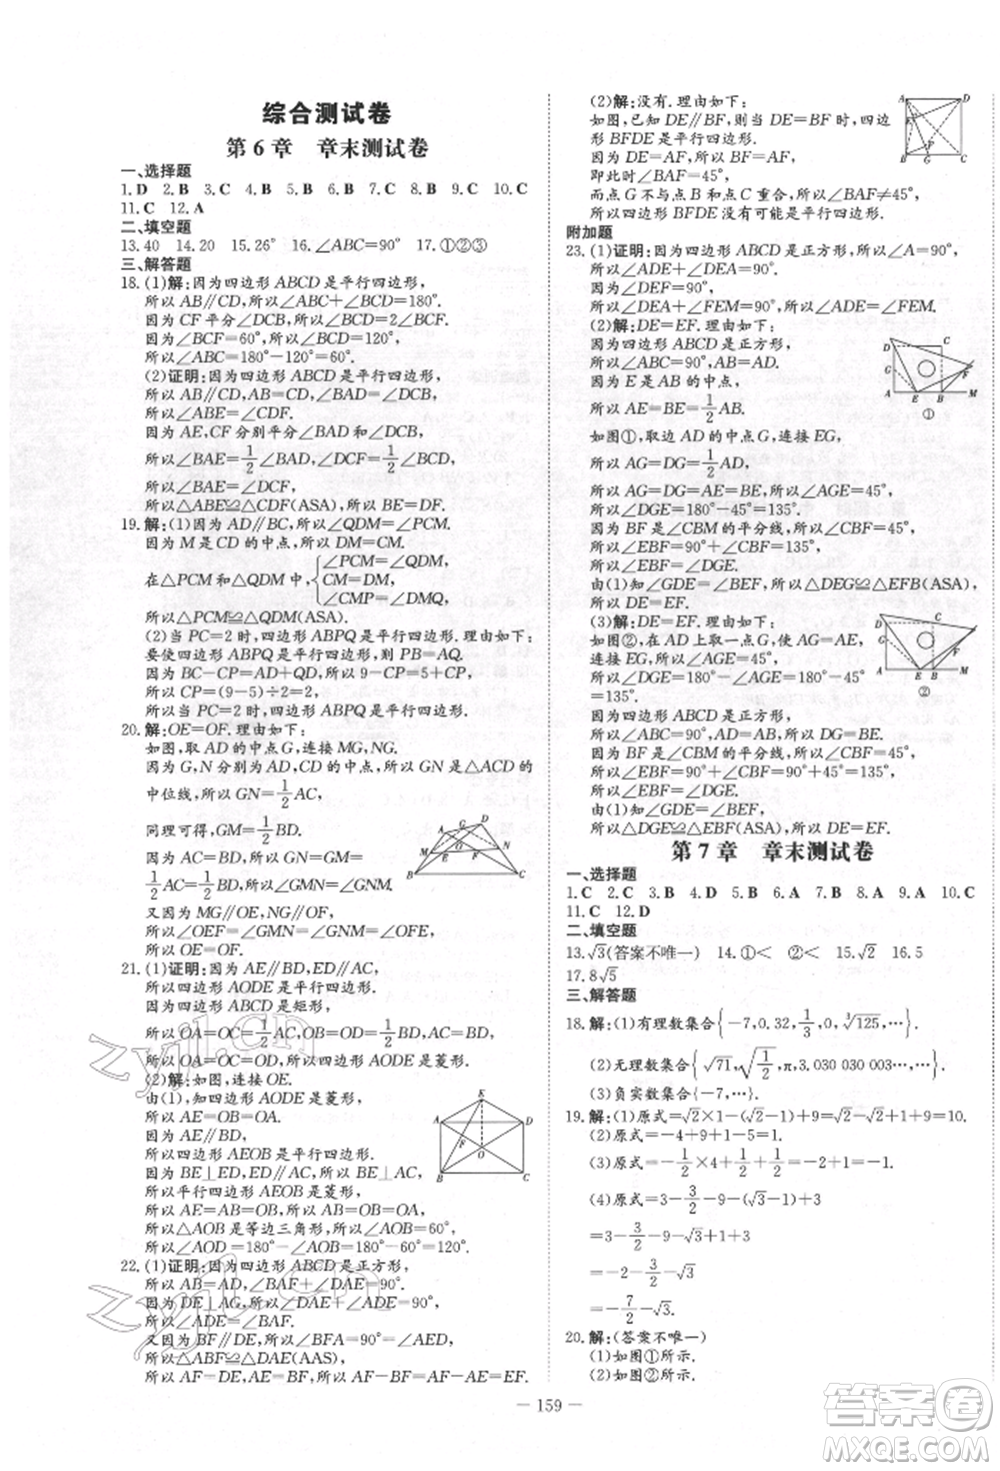 综合测试卷
第 6 章　章末测试卷
一、选择题
1.D　2.B　3.C　4.B　5.B　6.B　7.C　8.C　9.C　10.C
11.C　12.A
二、填空题
13.40　14.20　15.26°　16.∠ABC=90°　17.①②③
三、解答题
18.(1)解:因为四边形 ABCD 是平行四边形,
所以 AB∥CD,所以∠ABC+∠DCB=180°.
因为 CF 平分∠DCB,所以∠DCB=2∠BCF.
因为∠BCF=60°,所以∠DCB=120°,
所以∠ABC=180°-120°=60°.
(2)证明:因为四边形 ABCD 是平行四边形,
所以 AB∥CD,AB=CD,∠BAD=∠DCB,
所以∠ABE=∠CDF.
因为 AE,CF 分别平分∠BAD 和∠DCB,
所以∠BAE=1/2∠BAD,∠DCF=1/2∠BCD,
所以∠BAE=∠DCF,
所以△ABE≌△CDF(ASA),所以 BE=DF.
19.解:(1)因为 AD∥BC,所以∠QDM=∠PCM.
因为 M 是 CD 的中点,所以 DM=CM.
在△PCM 和△QDM 中,{∠PCM=∠QDM, CM=DM, ∠CMP=∠DMQ,
所以△PCM≌△QDM(ASA).
(2)当 PC=2 时,四边形 ABPQ 是平行四边形,理由如下:
要使四边形 ABPQ 是平行四边形,则 PB=AQ.
因为 BC-CP=AD+QD,所以 9-CP=5+CP,
所以 CP=(9-5)÷2=2.
所以当 PC=2 时,四边形 ABPQ 是平行四边形.
20.解:OE=OF.理由如下:
如图,取 AD 的中点 G,连接 MG,NG.
因为 G,N 分别为 AD,CD 的中点,所以 GN 是△ACD 的
中位线,所以 GN=1/2AC,
同理可得,GM=1/2BD.
因为 AC=BD,所以 GN=GM=
1/2AC=1/2BD.所以∠GMN=∠GNM.
又因为 MG∥OE,NG∥OF,
所以∠OEF=∠GMN=∠GNM=∠OFE,
所以 OE=OF.
21.(1)证明:因为 AE∥BD,DE∥AC,
所以四边形 AODE 是平行四边形.
因为四边形 ABCD 是矩形,
所以 OA=OC=1/2AC,OB=OD=1/2BD,AC=BD,
所以 OA=OC=OD,所以四边形 AODE 是菱形.
(2)解:如图,连接 OE.
由(1),知 AE=OB=OA.
因为 AE∥BD,
所以四边形 AEOB 是平行四边形.
因为 BE⊥AE,
所以平行四边形 AEOB 是菱形,
所以 AE=AB=OB=OA,
所以△AOB 是等边三角形,所以∠AOB=60°,
所以∠AOD=180°-∠AOB=120°.
22.(1)证明:因为四边形 ABCD 是正方形,
所以 AB=AD,∠BAF+∠DAE=90°.
因为 DE⊥AG,所以∠DAE+∠ADE=90°,
所以∠ADE=∠BAF.
因为 BF∥DE,所以∠BFA=90°=∠AED,
所以△ABF≌△DAE(AAS),
所以 AF=DE,AE=BF,所以 AF-BF=AF-AE=EF.
(2)解:没有.理由如下:
如图,已知 DE∥BF,则当 DE=BF 时,四边
形 BFDE 是平行四边形.
因为 DE=AF,所以 BF=AF,
即此时∠BAF=45°,
而点 G 不与点 B 和点 C 重合,所以∠BAF≠45°,
所以四边形 BFDE 没有可能是平行四边形.
附加题
23.(1)证明:因为四边形 ABCD 是正方形,所以∠A=90°,
所以∠ADE+∠DEA=90°.
因为 DE⊥EF,
所以∠DEA+∠FEM=90°,所以∠ADE=∠FEM.
(2)解:DE=EF.理由如下:
因为四边形 ABCD 是正方形,
所以∠ABC=90°,AB=AD.
因为 E 是 AB 的中点,
所以 AE=BE=1/2AB.
如图①,取边 AD 的中点 G,连接 EG,
所以 AG=DG=AE=BE,所以∠AGE=45°,
所以∠DGE=180°-45°=135°.
因为 BF 是∠CBM 的平分线,所以∠CBF=45°,
所以∠EBF=90°+45°=135°,
所以∠EBF=∠DGE.
由(1)知∠GDE=∠BEF,所以△DGE≌△EFB(ASA),
所以 DE=EF.
(3)解:DE=EF.理由如下:
如图②,在 AD 上取一点 G,使 AG=AE,
连接 EG,所以∠AGE=45°,
所以∠DGE=180°-∠AGE=180°-45°
=135°.
因为四边形 ABCD 是矩形,
所以∠ABC=90°.
因为 BF 是∠CBM 的平分线,所以∠CBF=45°,
所以∠EBF=90°+45°=135°,
所以∠EBF=∠DGE.
由(1)知∠GDE=∠BEF,
所以△DGE≌△EBF(ASA),所以 DE=EF.
第 7 章　章末测试卷
一、选择题
1.C　2.C　3.B　4.D　5.B　6.A　7.B　8.A　9.A　10.C
11.C　12.D
二、填空题
13.√3(答案不唯一)　14.①<　②<　15.√2　16.5
17.8√5
三、解答题
18.解:(1)有理数集合{-7,0.32,1/3,0,³√125,…}.
(2)无理数集合{√71,√(1/2),π,3.030 030 003…,…}.
(3)负实数集合{-7,…}.
19.解:(1)原式=√2×1-(√2-1)+9=√2-√2+1+9=10.
(2)原式=-4+9+1-5=1.
(3)原式=-1/2×4+1/2+1/2=-2+1/2+1/2=-1.
(4)原式=-3-3/2-(√3-1)+3
=-3-3/2-√3+1+3
=-2-3/2-√3
=-7/2-√3.
20.解:(答案不唯一)
(1)如图①所示.
(2)如图②所示.
— 159 —
zyjl.cn
zyjl.cn
答案圈
MXQE.COM